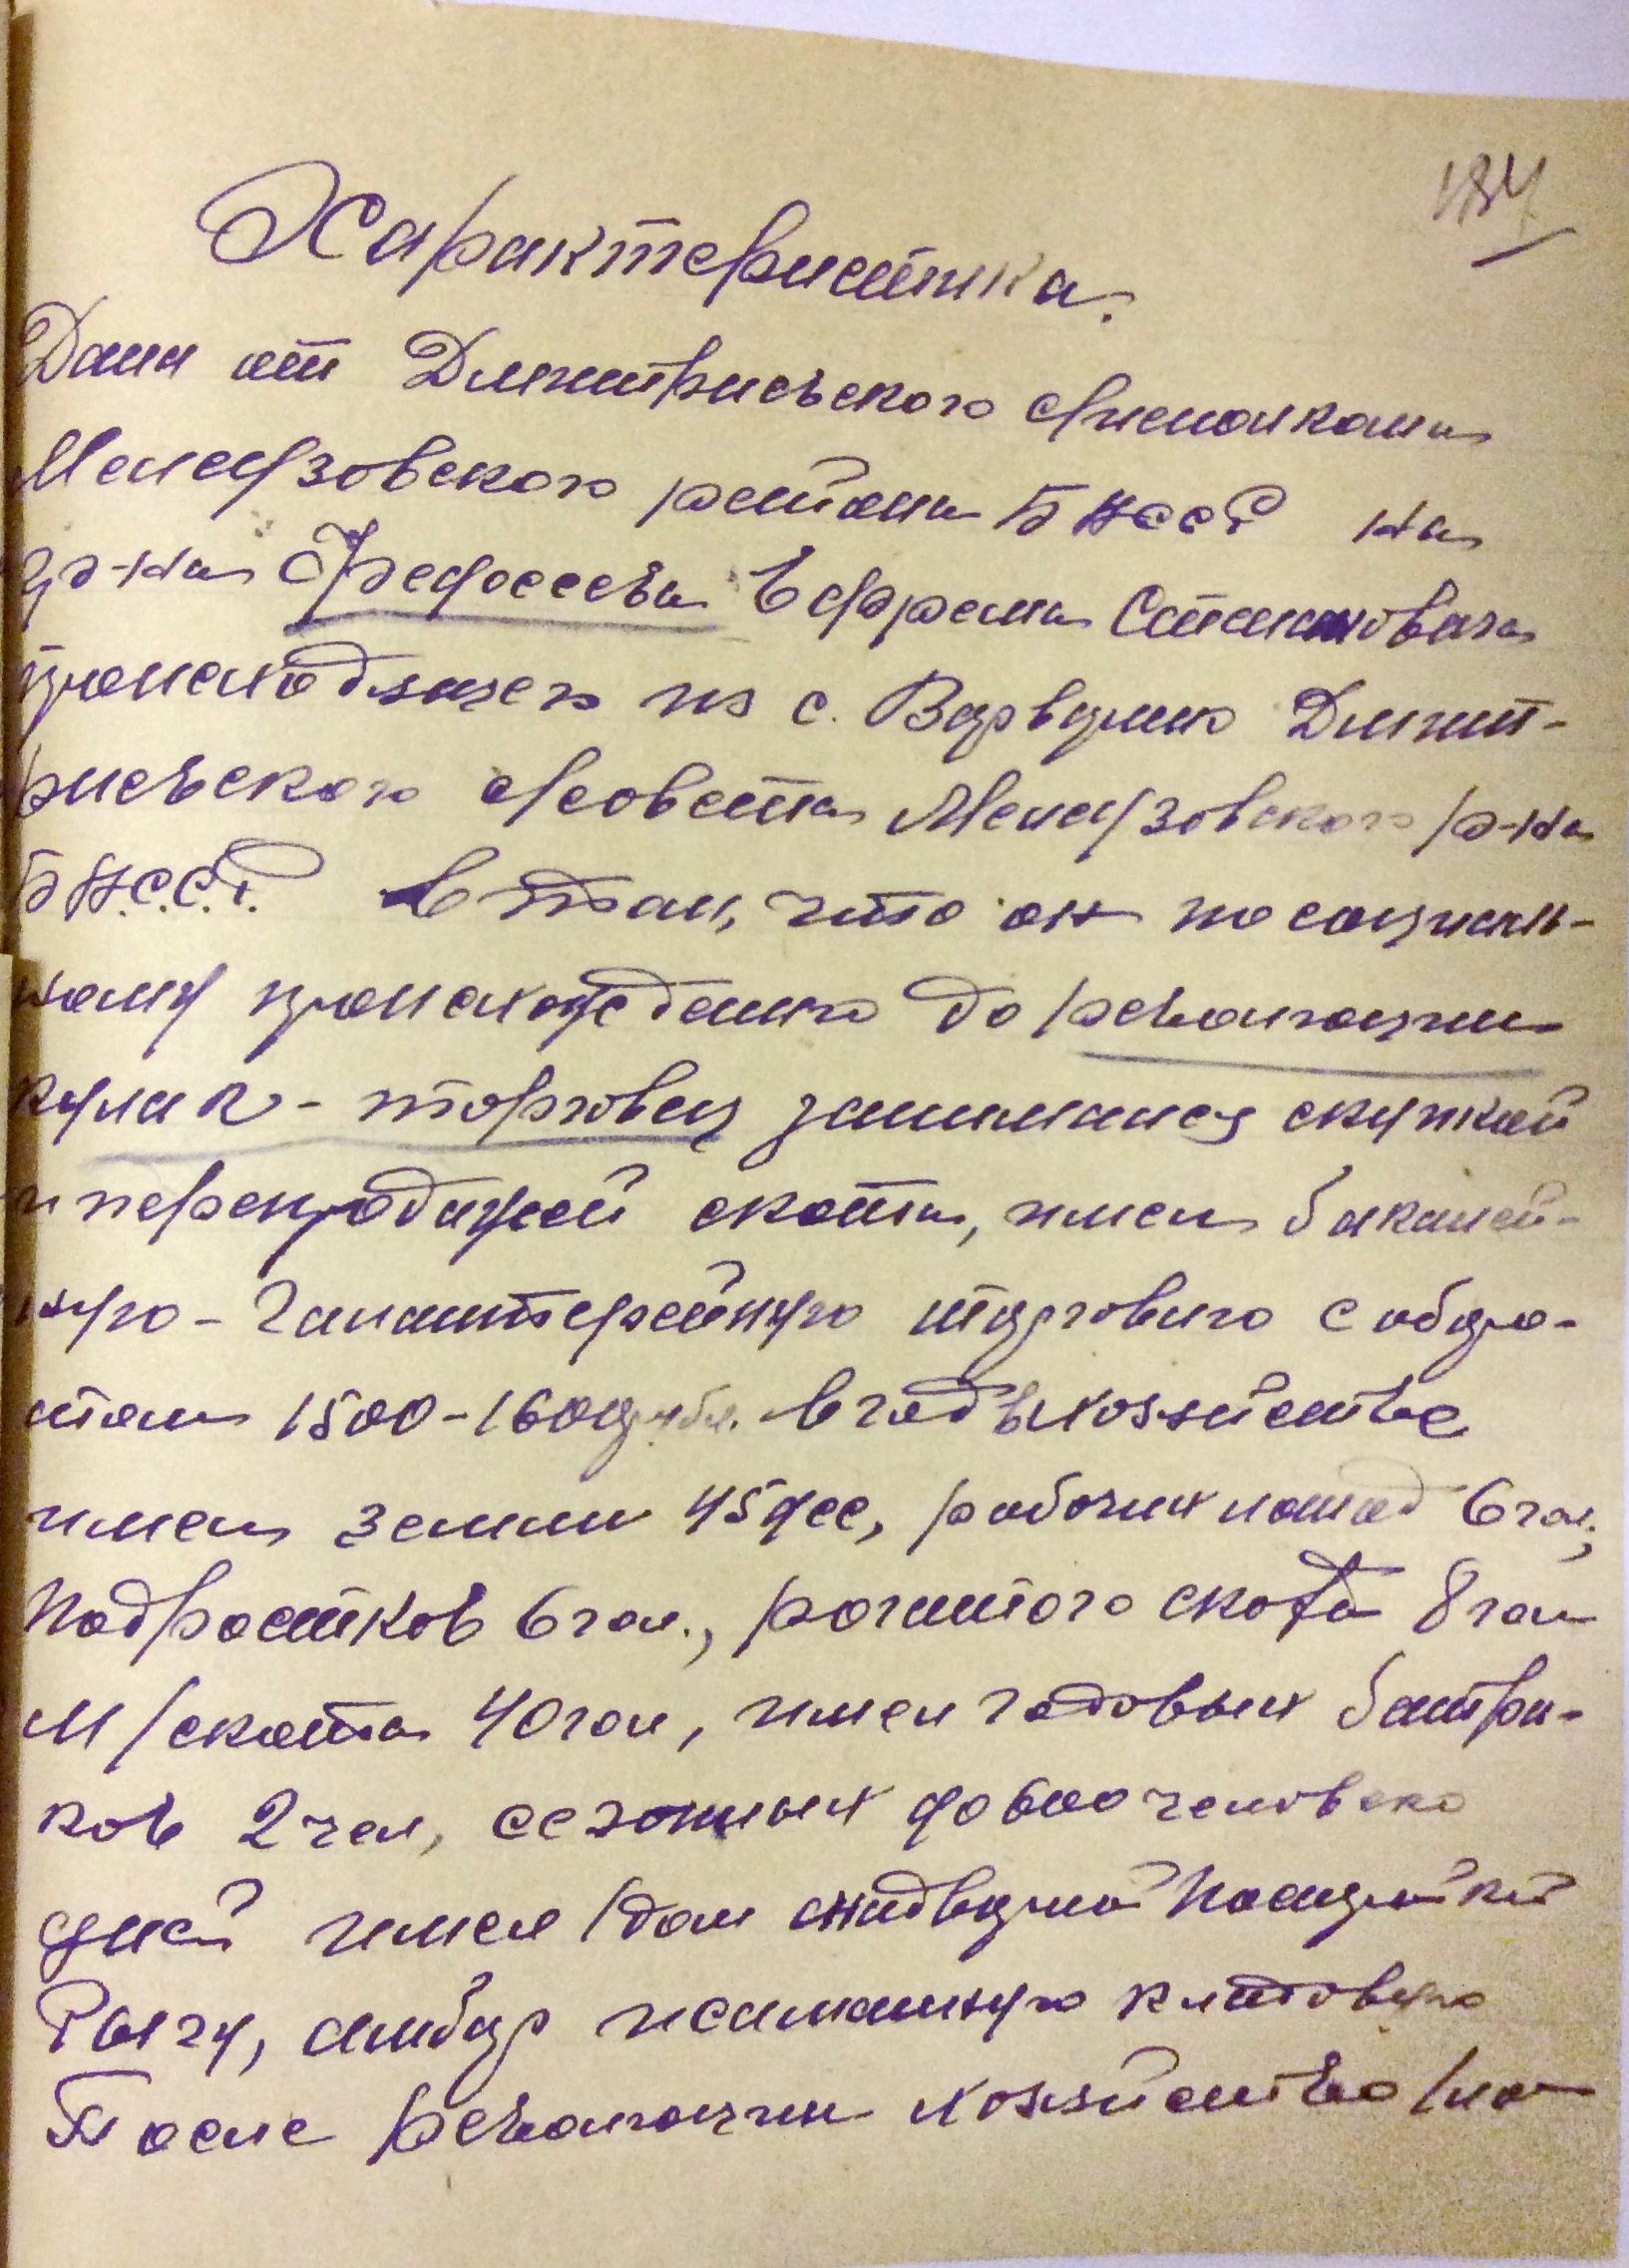 184
Характеристика.
Дана от Дмитриевского с/исполкома
Мелеузовского района БАССР на
гр-на Федосеева Ефрема Степановича
происходящего из с. Варварино Дмит-
риевского с/совета Мелеузовского р-на
Б.А.С.С.Р. в том, что он по социаль-
ному происхождению до революции
кулак - торговец занимался скупкой
и перепродажей скота, имел бакалей-
ную - галантерейную торговлю с оборо-
том 1500-1600 рубл. в год в хозяйстве
имел земли 45 дес, рабочих лошад 6 гол.,
подростков 6 гол., рогатого скота 8 гол
м/скота 40 гол, имел годовых батра-
ков 2 чел, сезонных до 600 человеко
дней имел дом надворной постройкой
Рыгу, амбар и саманную кладовую
После революции хозяйство